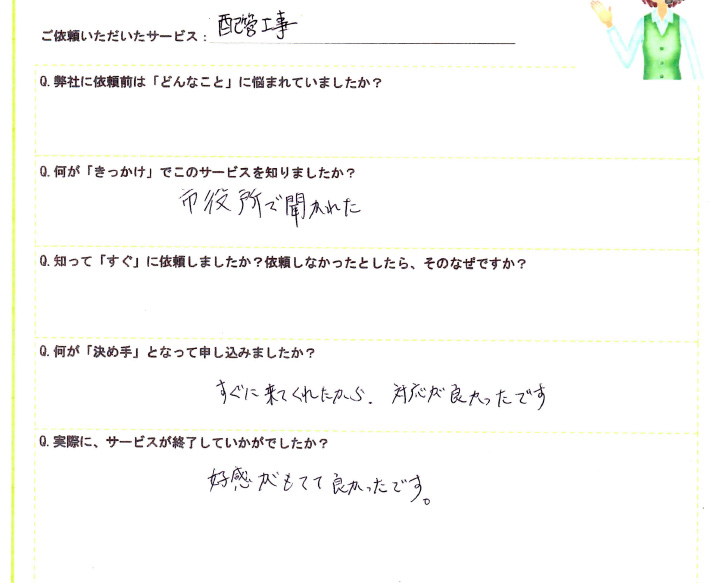 ご依頼いただいたサービス： 配管工事
Q.弊社に依頼前は「どんなこと」に悩まれていましたか？
Q.何が「きっかけ」でこのサービスを知りましたか？
市役所で聞かれた
Q.知って「すぐ」に依頼しましたか？依頼しなかったとしたら、そのなぜですか？
Q.何が「決め手」となって申し込みましたか？
すぐに来てくれたから．対応が良かったです
Q.実際に、サービスが終了していかがでしたか？
好感がもてて良かったです。